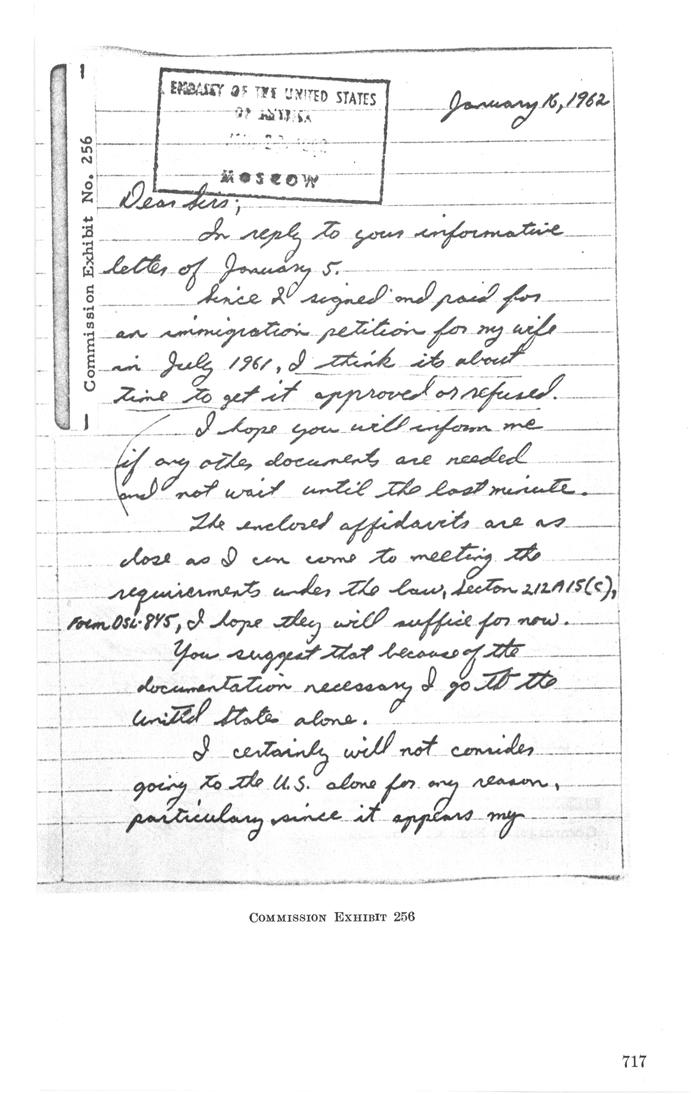 1
Commission Exhibit No. 256
EMBASSY OF THE UNITED STATES
OF AMERICA
MOSCOW
January 16, 1962
Dear Sirs;
In reply to your informative
letter of January 5.
Since I signed and paid for
an immigration petition for my wife
in July 1961, I think its about
time to get it approved or refused.
I hope you will inform me
if any other documents are needed
and not wait until the last minute.
The enclosed affidavits are as
close as I can come to meeting the
requirements under the law, Section 212A15(c),
Form DSL-845, I hope they will suffice for now.
You suggest that because of the
documentation necessary I go to the
United States alone.
I certainly will not consider
going to the U.S. alone for any reason,
particulary since it appears my
COMMISSION EXHIBIT 256
717